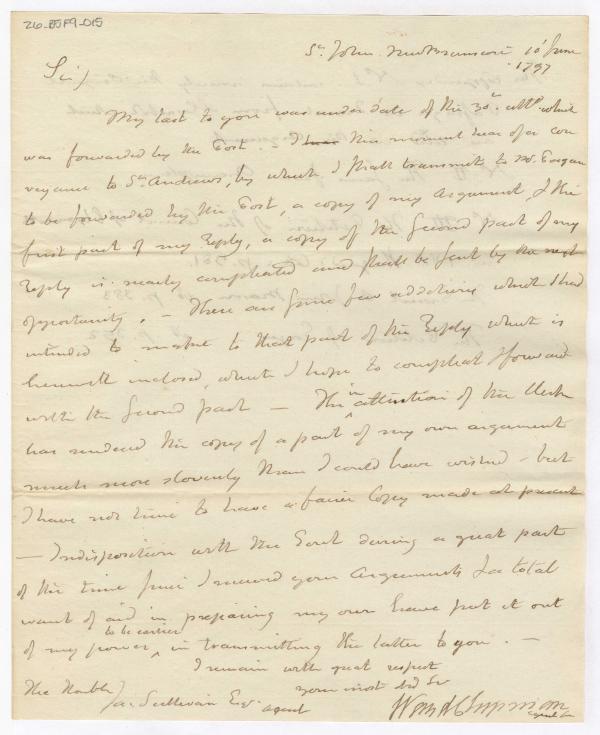 26-BSF9-015
St. John New Brunswick 10 June
1797
Sir/
My last to you was under date of the 30th. ulto. which
was forwarded by the Post. - I this moment hear of a con
veyance to St. Andrews, by which I shall transmit to Mr. Pagan
to be forwarded by the Post, a copy of my Argument, & the
first part of my Reply, a copy of the Second part of my
Reply is nearly compleated and shall be sent by the next
opportunity. - There are some few additions which I had
intended to make to that part of the Reply which is
herewith inclosed, which I hope to compleat & forward
with the Second part - The inattention of the Clerk
has rendered the copy of a part of my own argument
much more slovenly than I could have wished - but
I have not time to have a fairer Copy made at present
- Indisposition with the Gout during a great part
of the time since I received your Arguments & a total
want of aid in preparing my own have put it out
of my power to be earlier in transmitting the latter to you. -
I remain with great respect
your most Obd Sr
The Honble
Ja. Sullivan Esqr. agent
Ward Chipman
agent &c